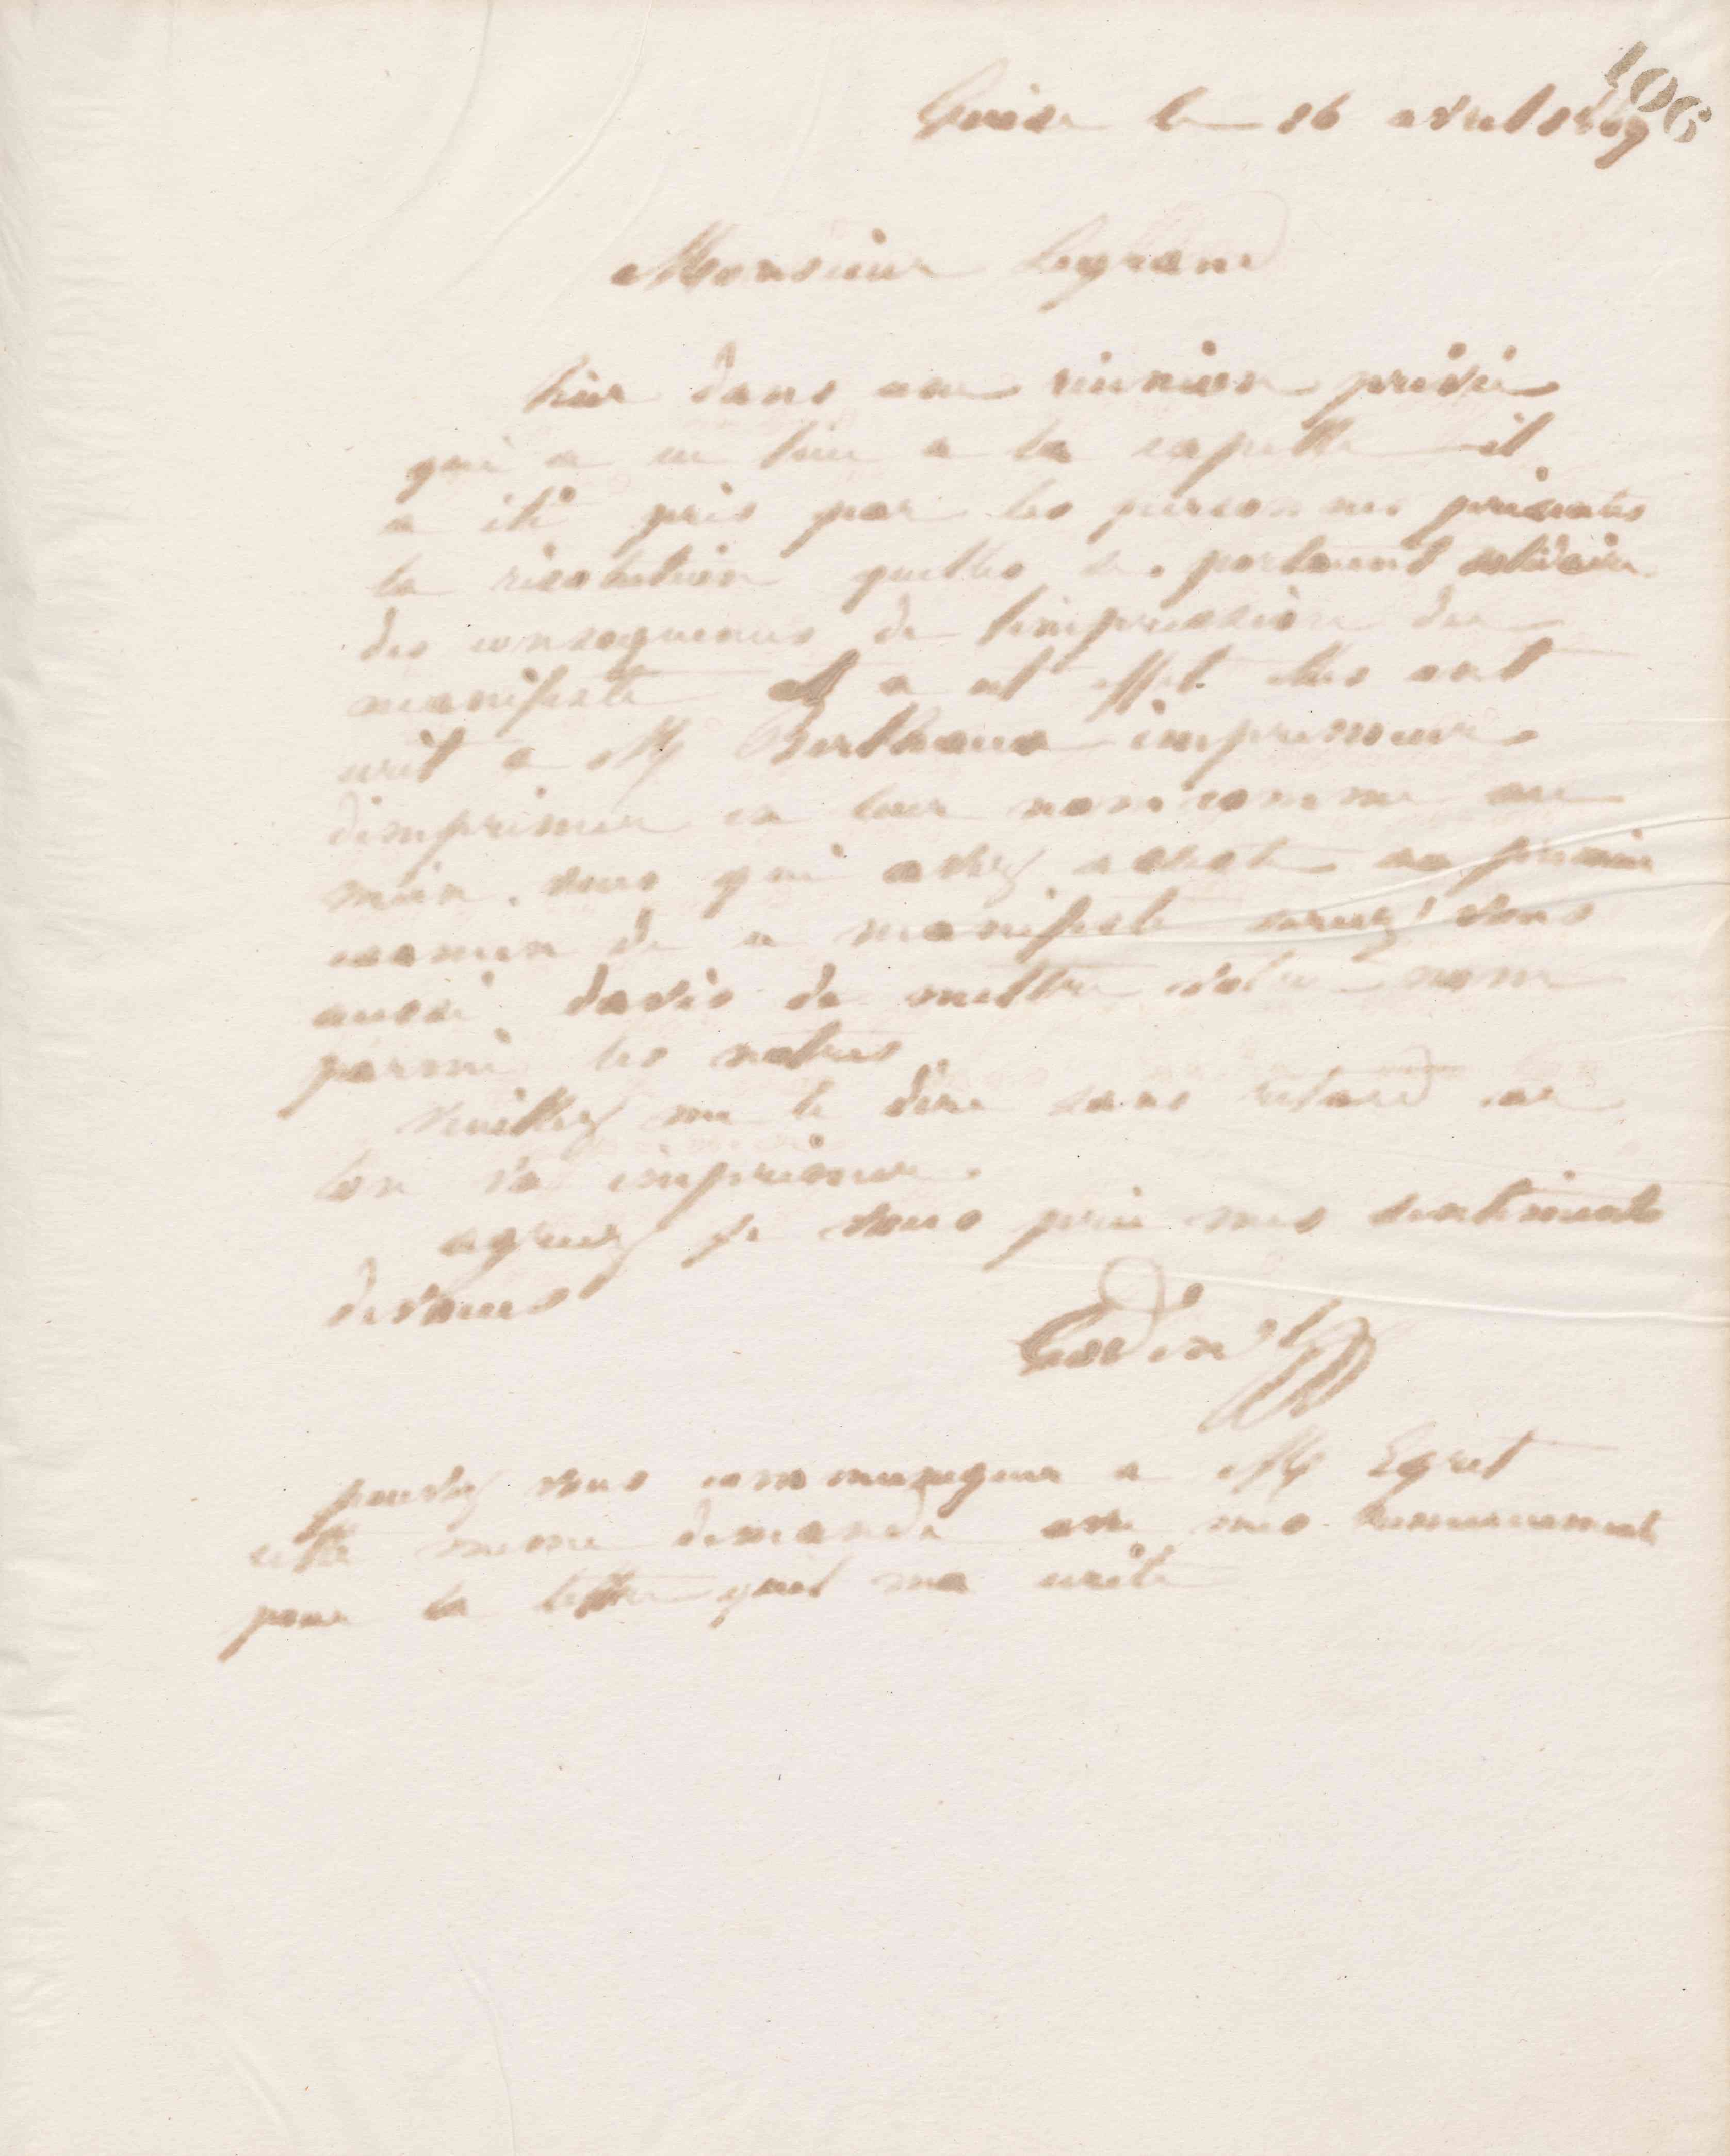 106
Guise le 16 avril 1869
Monsieur Legrand
hier dans une réunion privée
qui a eu lieu a la capelle il
a été pris par les personnes présentes
la résolution quelles se portaient solidaires
des conséquences de l'impression du
manifeste et a cet effet elles ont
écrit a M Berthaux imprimeur
dimprimer en leur nom comme au
mien. vous qui avez assisté au premier
examen de ce manifeste serez vous
aussi davis de mettre votre nom
parmi les notres
veuillez me le dire sans retard car
lon va imprimer.
agréez je vous prie mes sentiments
dévoués
Godin
pouvez vous communiquer a M Egret
cette meme demande avec mes remerciements
pour la lettre quil ma écrite